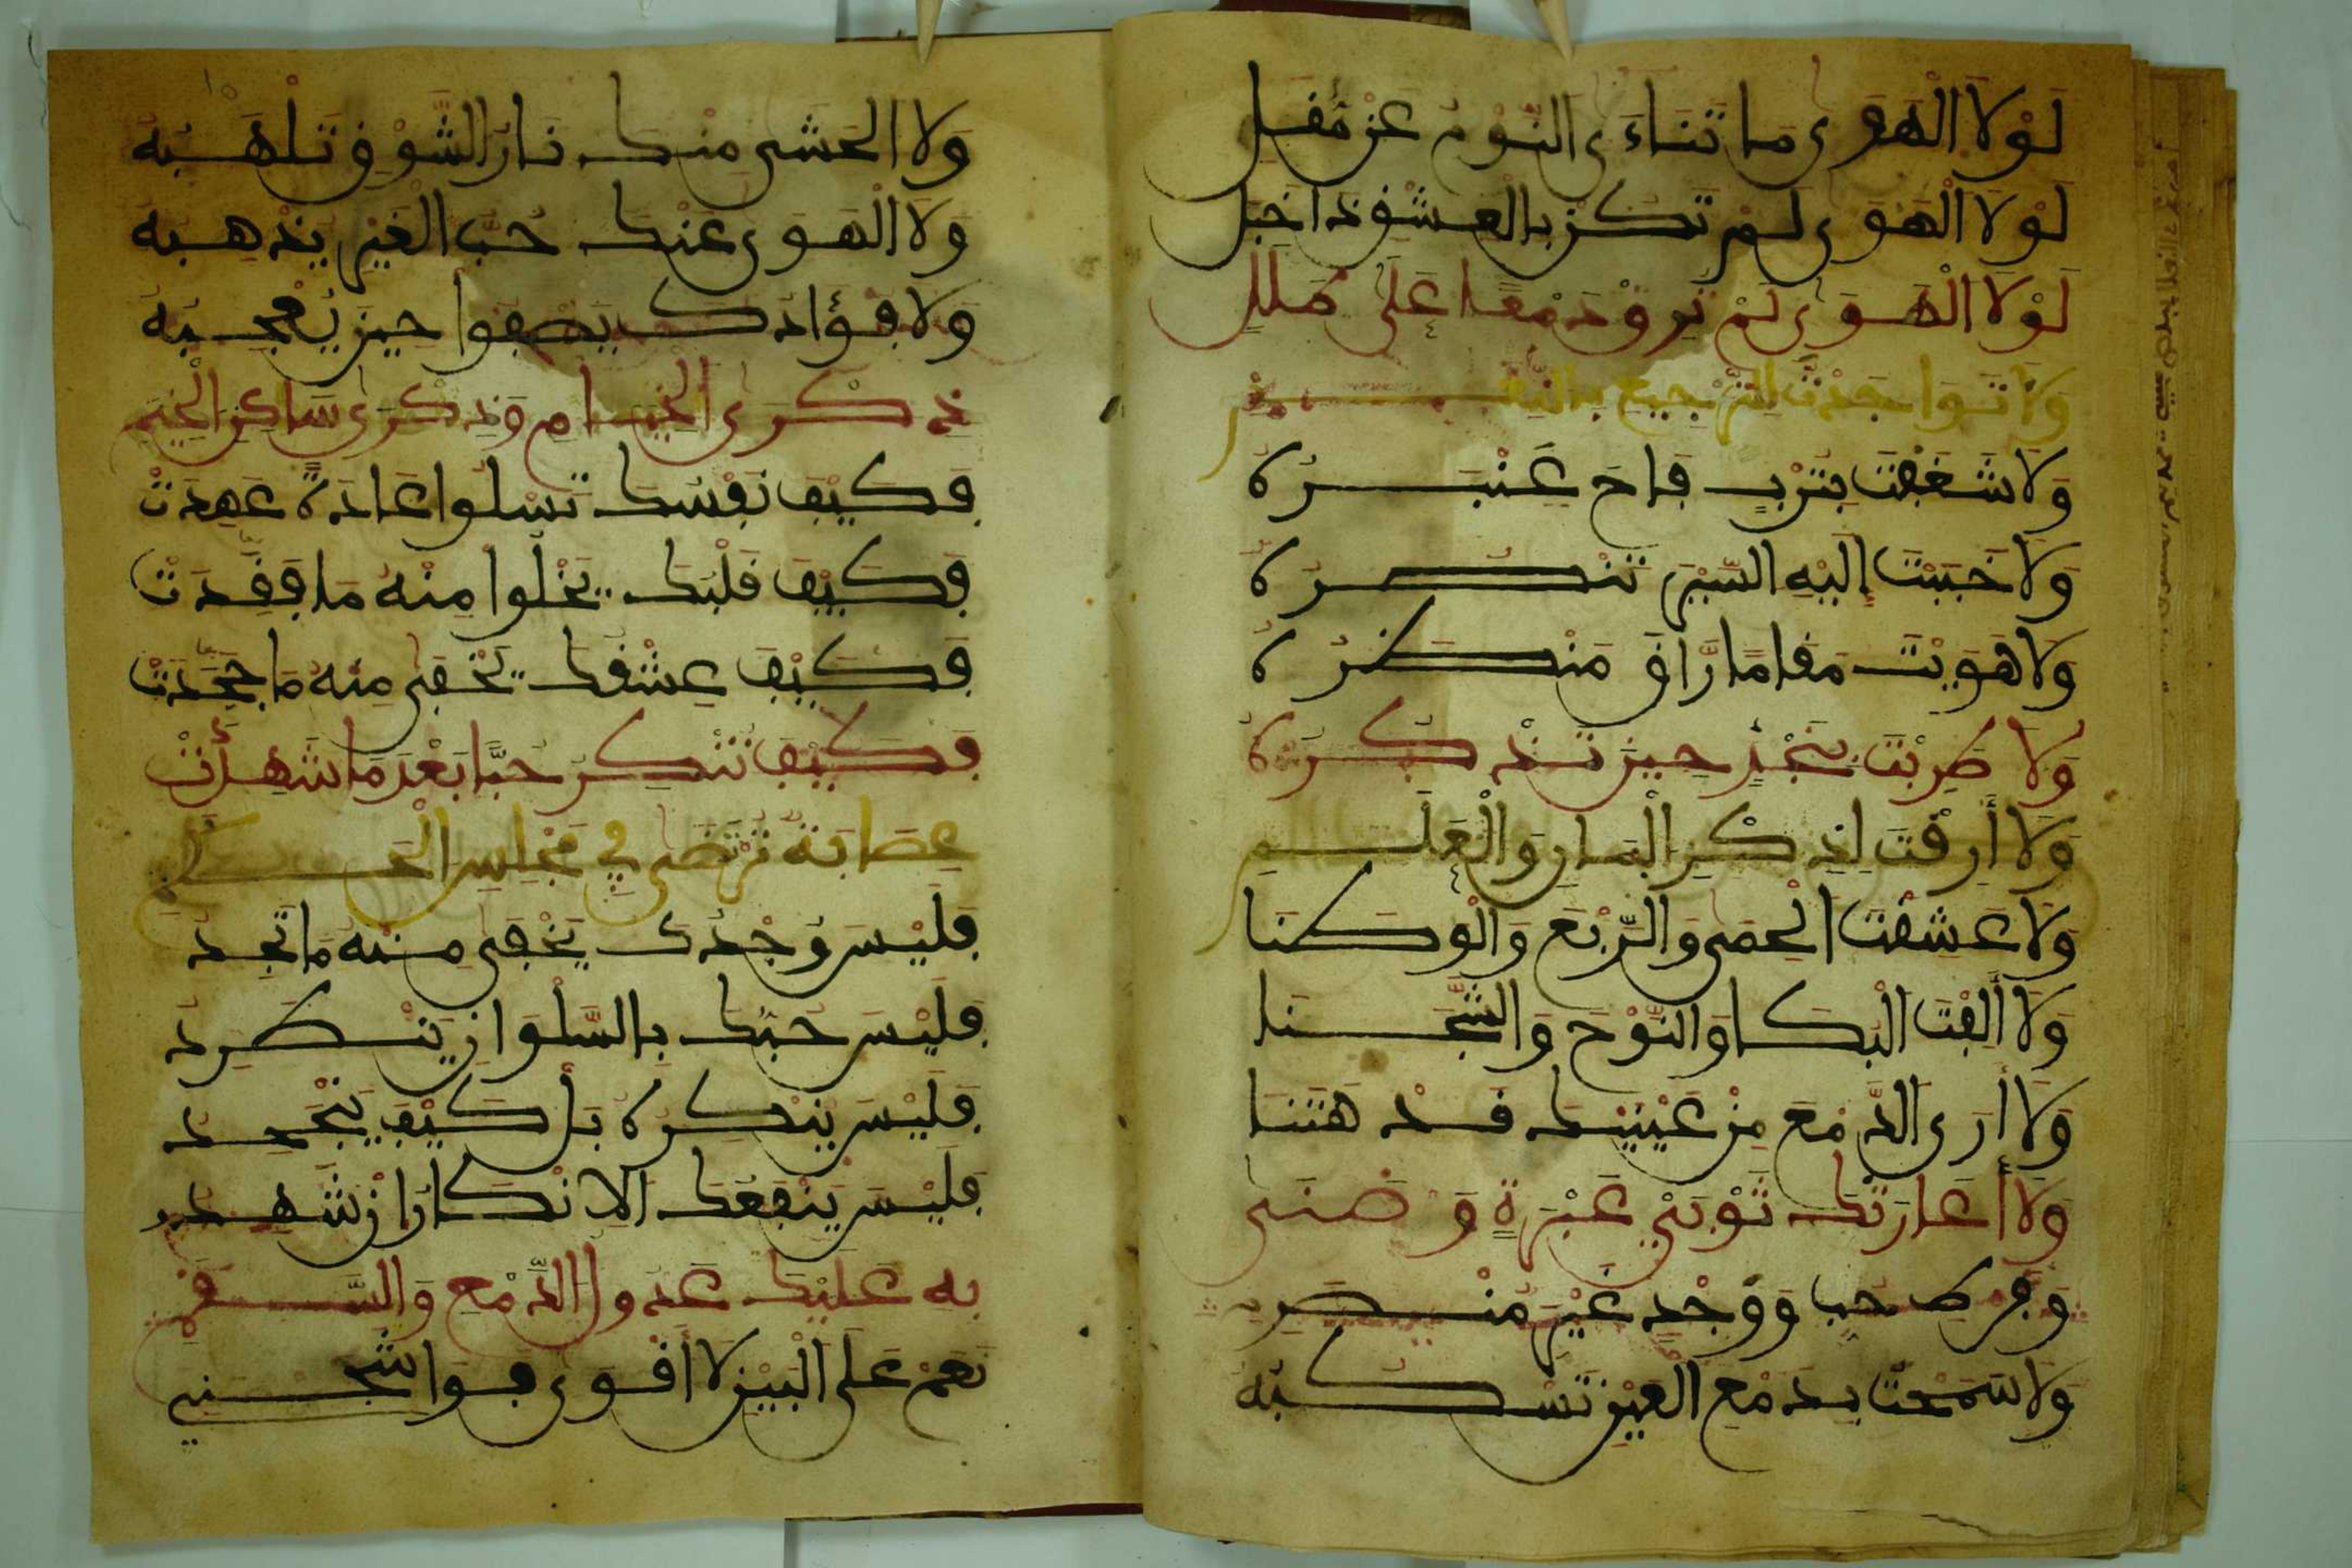 لَوْلَا الْهَوَى مَا تَنَاءَى النَّوْمُ عَنْ مُقَلِ
لَوْلَا الْهَوَى لَمْ تَكُنْ بِالْعِشْقِ ذَا خَبَلِ
لَوْلَا الْهَوَى لَمْ تُرِقْ دَمْعًا عَلَى طَلَلِ
وَلَا شَغَفْتَ بِتُرْبٍ فَاحَ عَنْبَرُهُ
وَلَا خَبَبْتَ إِلَيْهِ السَّيْرَ تَنْكُرُهُ
وَلَا هَوَيْتَ مَقَامًا رَاقَ مَنْظَرُهُ
وَلَا طَرِبْتَ بِنَجْدٍ حِينَ تَذْكُرُهُ
وَلَا أَرِقْتَ لِذِكْرِ الْبَانِ وَالْعَلَمِ
وَلَا عَشِقْتَ الْحِمَى وَالرَّبْعَ وَالْوَطَنَا
وَلَا أَلِفْتَ الْبُكَا وَالنَّوْحَ وَالشَّجَنَا
وَلَا أَرَى الدَّمْعَ مِنْ عَيْنَيْكَ قَدْ هَتَنَا
وَلَا أَعَارَتْكَ ثَوْبَيْ عَبْرَةٍ وَضَنَى
وَفَرْطِ حُبٍّ وَوَجْدٍ غَيْرِ مُنْصَرِمِ
وَلَا سَمَحْتَ بِدَمْعِ الْعَيْنِ تَسْكُبُهُ
وَلَا الْحَشَى مِنْكَ نَارُ الشَّوْقِ تَلْهَبُهُ
وَلَا الْهَوَى عَنْكَ حُبُّ الْغَيْرِ يُذْهِبُهُ
وَلَا فُؤَادُكَ يَصْفُوا حِينَ يُعْجِبُهُ
ذِكْرَى الْخِيَامِ وَذِكْرَى سَاكِنِ الْخِيَمِ
فَكَيْفَ نَفْسُكَ تَسْلُوا عَادَةً عَهِدَتْ
فَكَيْفَ قَلْبُكَ يَخْلُوا مِنْهُ مَا فَقَدَتْ
فَكَيْفَ عِشْقُكَ يَخْفَى مِنْهُ مَا جَحَدَتْ
فَكَيْفَ تُنْكِرُ حُبًّا بَعْدَ مَا شَهِدَتْ
عِصَابَةٌ تُرْتَضَى فِي مَجْلِسِ الْحَكَمِ
فَلَيْسَ وَجْدُكَ يَخْفَى مِنْهُ مَا تَجِدُ
فَلَيْسَ حُبُّكَ بِالسُّلْوَانِ يَنْطَرِدُ
فَلَيْسَ يُنْكِرُهُ بَلْ كَيْفَ يَنْجَحِدُ
فَلَيْسَ يَنْفَعُكَ الْإِنْكَارُ إِنْ شَهِدُوا
بِهِ عَلَيْكَ عُدُولُ الدَّمْعِ وَالسَّقَمِ
نَعَمْ عَلَى الْبَيْنِ لَا أَقْوَى فَوَا شَجَنِي